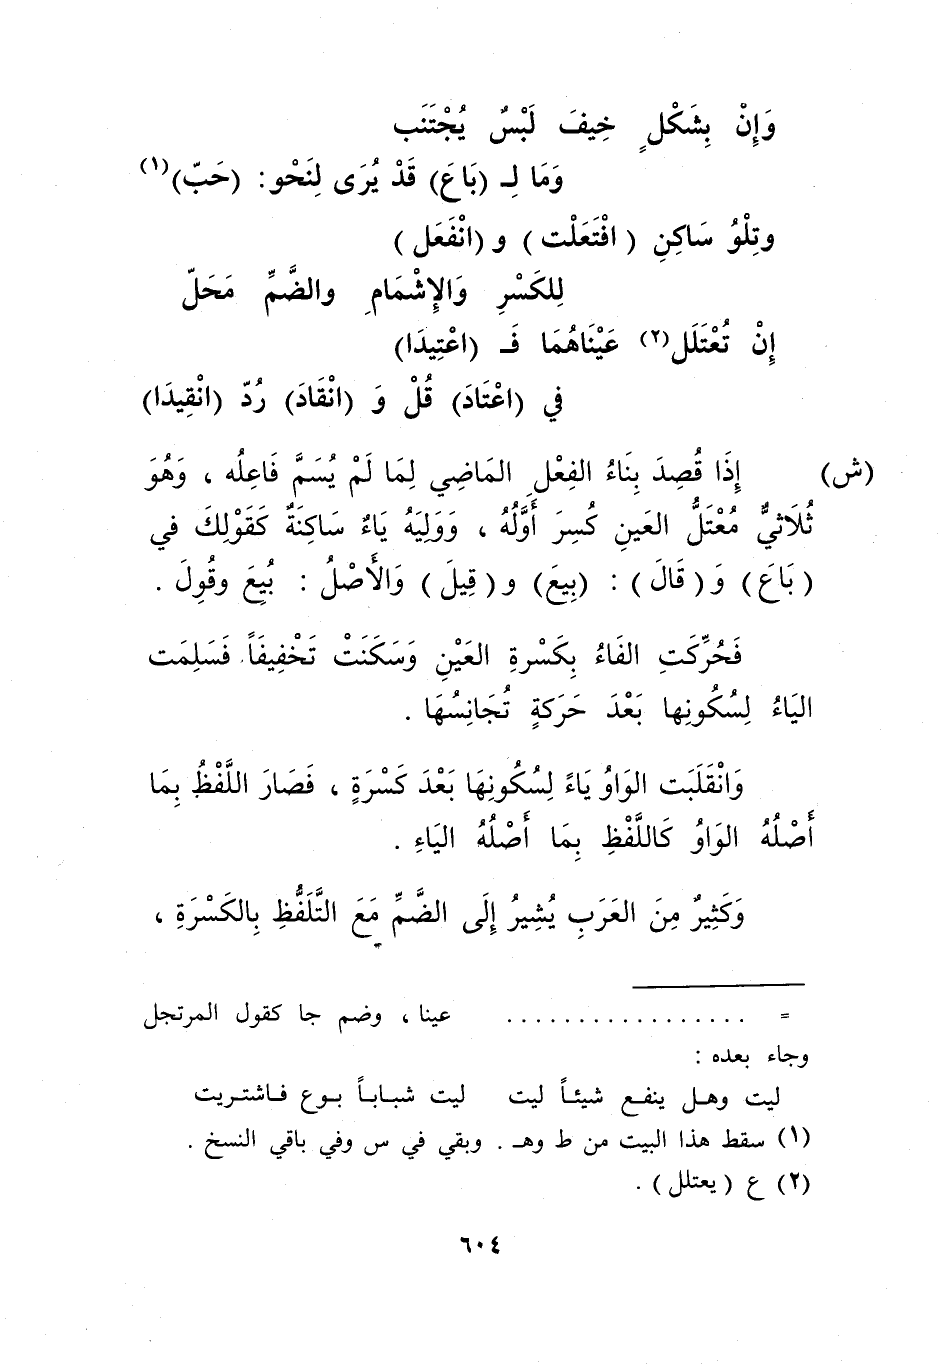 وَإِنْ بِشَكْلٍ خِيفَ لَبْسٌ يُجْتَنَب
وَمَا لِـ (بَاعَ) قَدْ يُرَى لِنَحْو: (حَبّ)(١)
وتِلْوُ سَاكِنِ ( افْتَعَلْت ) و (انْفَعَل )
لِلكَسْرِ وَالإِشْمَامِ والضَّمِّ مَحَلّ
إِنْ تُعْتَلَل(٢) عَيْنَاهُمَا فَـ (اعْتِيدَا)
في (اعْتَادَ) قُلْ وَ (انْقَادَ) رُدّ (انْقِيدَا)
(ش) إِذَا قُصِدَ بِنَاءُ الفِعْلِ المَاضِي لِمَا لَمْ يُسَمَّ فَاعِلُه ، وَهُوَ
ثُلَاثيٌّ مُعْتَلُّ العَينِ كُسِرَ أَوَّلُهُ ، وَوَلِيَهُ يَاءٌ سَاكِنَةٌ كَقَوْلِكَ في
( بَاعَ ) وَ ( قَالَ ) : (بِيعَ) و ( قِيلَ ) وَالأَصْلُ : بُيِعَ وقُوِلَ .
فَحُرِّكَتِ الفَاءُ بِكَسْرةِ العَيْنِ وَسَكَنَتْ تَخْفِيفَاً فَسَلِمَت
اليَاءُ لِسُكُونِها بَعْدَ حَرَكةٍ تُجَانِسُهَا .
وَانْقَلَبَت الوَاوُ يَاءً لِسُكُونِهَا بَعْدَ كَسْرَةٍ ، فَصَارَ اللَّفْظُ بِمَا
أَصْلُهُ الوَاوُ كَاللَّفْظِ بِمَا أَصْلُهُ اليَاءِ .
وَكَثِيرٌ مِنَ العَرَبِ يُشِيرُ إِلَى الضَّمِّ مَعَ التَّلَفُّظِ بِالكَسْرَةِ ،
= . . . . . . . . . . . . . . . . . عينا ، وضم جا كقول المرتجل
وجاء بعده :
ليت وهـل ينفـع شيئـاً ليت ليت شبـابـاً بـوع فـاشتـريت
(١) سقط هذا البيت من ط وهـ . وبقي في س وفي باقي النسخ .
(٢) ع ( يعتلل ) .
٦٠٤